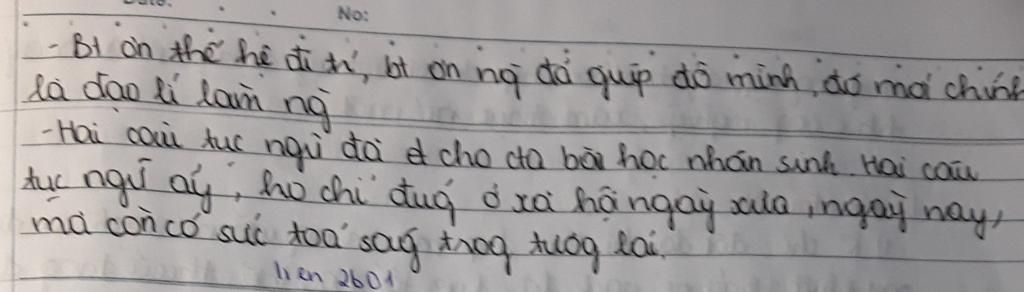 No:
- Bt ơn thế hệ đi tr', bt ơn ng` đã giúp đỡ mình, đó mới chính
là đạo lí làm ng`
- Hai câu tục ngữ đã cho ta bài học nhân sinh. Hai câu
tục ngữ ấy, ko chỉ đug' ở xã hội ngày xưa, ngày nay,
mà còn có sức toả ság trog tươg lai.
lien 2601